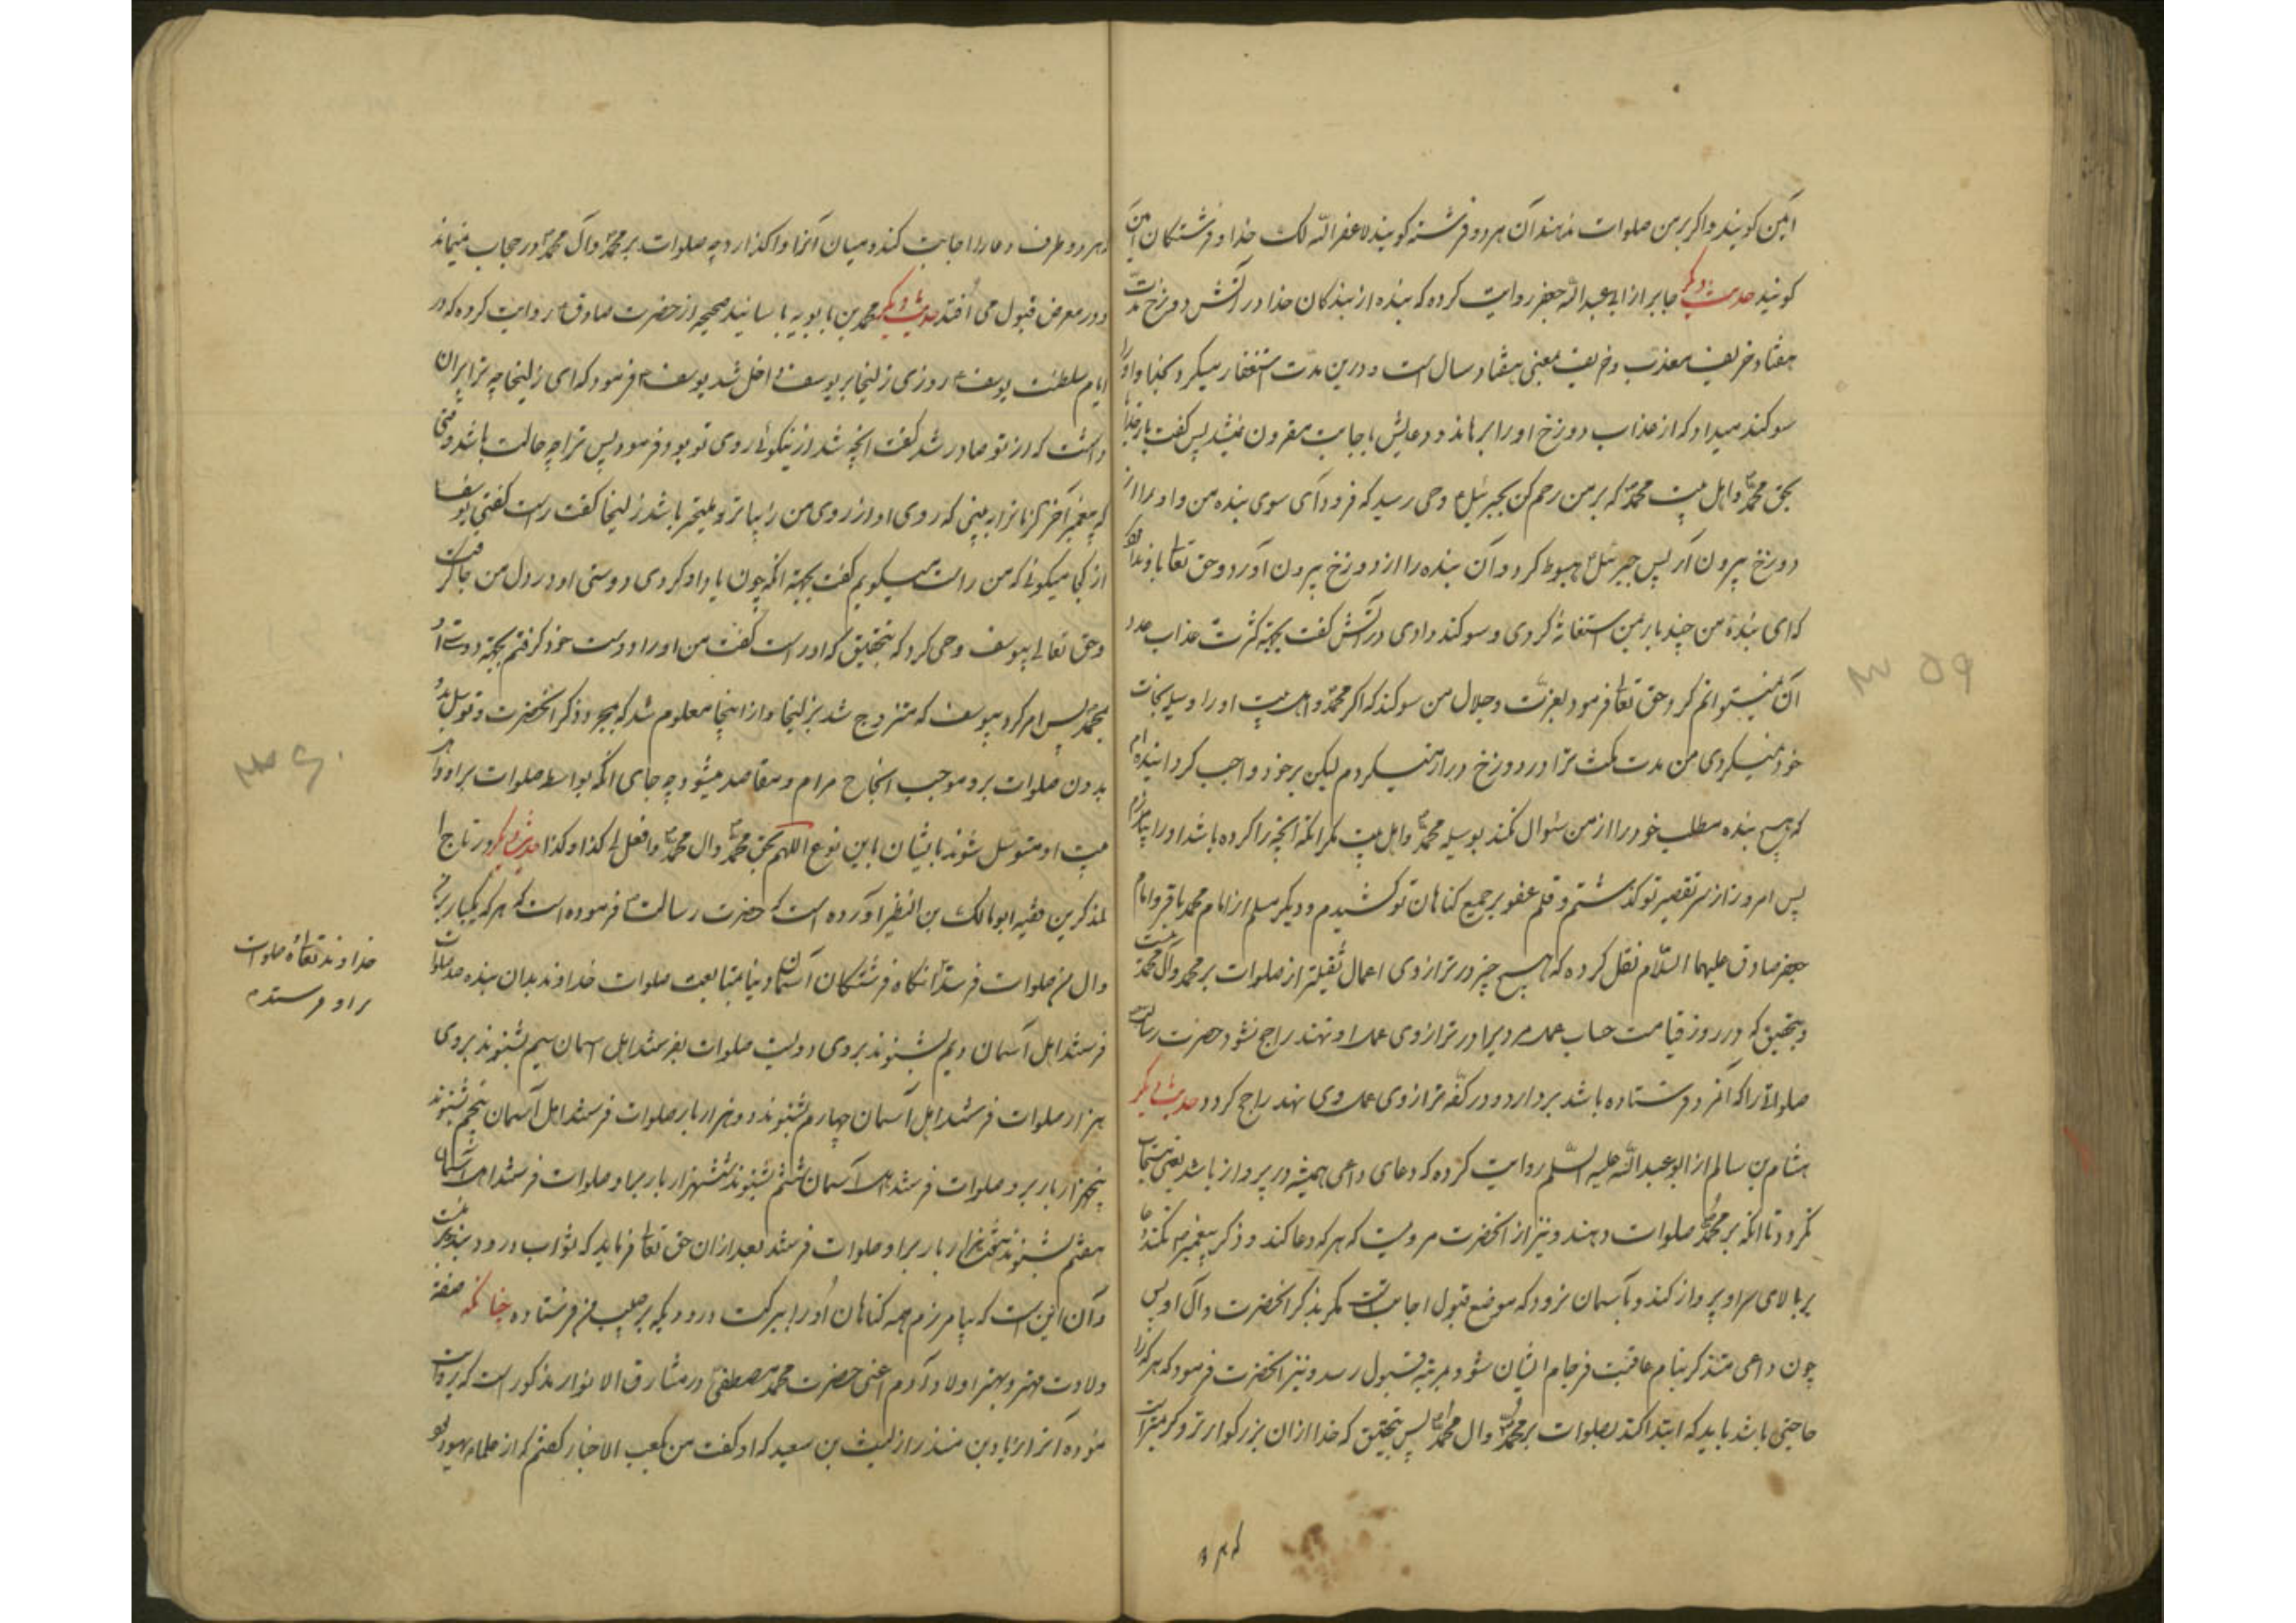 آمین کویند واکر بر من صلوات ندهند آن هر دو فرشته کویند لا غفر الله لک خدا و فرشتکان آمین
کویند حدیث دیکر جابر از ابی عبد الله جعفر روایت کرده که بنده از بندکان خدا در آتش دوزخ مدت
هفتاد خریف معذب و خریف بمعنی هفتاد سال است و درین مدت استغفار میکرد و بخدا او را
سوکند میداد که از عذاب دوزخ او را برهاند و دعایش باجابت مقرون نمیشد پس کفت بار خدایا
بحق محمد و اهل بیت محمد که بر من رحم کن بجبرئیل وحی رسید که فرود آی سوی بنده من و او را از
دوزخ بیرون آر پس جبرئیل هبوط کرد و آن بنده را از دوزخ بیرون آورد و حق تعالی باو ندا کرد
که ای بنده من چند بار بمن استغاثه کردی و سوکند دادی در آتش کفت بجهة کثرت عذاب عدد
آن نمیتوانم کرد حق تعالی فرمود بعزت و جلال من سوکند که اکر محمد و اهل بیت او را وسیله نجات
خود نمیکردی من مدت مکث ترا در دوزخ دراز میکردم لیکن بر خود واجب کردانیده ام
که هیچ بنده مطلب خود را از من سئوال نکند بوسیله محمد و اهل بیت مکر انکه آنچه را کرده باشد او را بیامرزم
پس امروز از سر تقصیر تو کذشتم و قلم عفو بر جمیع کناهان تو کشیدم و دیکر مسلم از امام محمد باقر و امام
جعفر صادق علیهما السلام نقل کرده که هیچ چیز در ترازوی اعمال ثقیلتر از صلوات بر محمد و آل محمد نیست
و بتحقیق که در روز قیامت حساب عمل مردیرا در ترازوی عمل او نهند راجح نشود حضرت رسالت
صلواتی را که آنمرد فرستاده باشد بردارد و در کفه ترازوی عمل وی نهد راجح کردد حدیث دیکر
هشام بن سالم از ابو عبد الله علیه السلام روایت کرده که دعای داعی همیشه در پرواز باشد یعنی مستجاب
نکردد تا انکه بر محمد صلوات دهند و نیز از انحضرت مرویست که هر که دعا کند و ذکر پیغمبر نکند دعا
بر بالای سر او پرواز کند و بآسمان نرود که موضع قبول اجابتست مکر بذکر انحضرت و آل او پس
چون داعی متذکر بنام عاقبت فرجام ایشان شود بمرتبه قبول رسد و نیز انحضرت فرمود که هر که را
حاجتی باشد باید که ابتدا کند بصلوات بر محمد و ال محمد پس بتحقیق که خدا ازان بزرکوارتر و کریمتر است
که هر دو
۳۵۹
هر دو طرف دعا را اجابت کند و میان آنرا واکذارد چه صلوات بر محمد و آل محمد در حجاب نمیماند
و در معرض قبول می افتد حدیث دیکر محمد بن بابویه با سانید صحیحه از حضرت صادق روایت کرده که در
ایام سلطنت یوسف روزی زلیخا بر یوسف داخل شد یوسف فرمود که ای زلیخا چه ترا بران
داشت که از تو صادر شد کفت انچه شد از نیکوئی روی تو بود فرمود پس ترا چه حالت باشد وقتی
که پیغمبر آخر الزمان را به بینی که روی او از روی من زیباتر و ملیحتر باشد زلیخا کفت راست کفتی یوسف کفت
از کجا میکوئی که من راست میکویم کفت بجهة انکه چون یاد او کردی دوستی او در دل من جا کرفت
و حق تعالی بیوسف وحی کرد که بتحقیق که او راست کفت من او را دوست خود کرفتم بجهة دوستی او
بمحمد پس امر کرد بیوسف که متزوج شد بزلیخا و از اینجا معلوم شد که بمجرد ذکر انحضرت و توسل بدو
بدون صلوات برو موجب انجاح مرام و مقاصد میشود چه جای انکه بواسطه صلوات بر او و اهل
بیت او متوسل شوند بایشان باین نوع اللهم بحق محمد وال محمد وافعل لی کذا وکذا حدیث دیکر در تاج ا
لمذکرین فقیه ابو مالک بن النظیر آورده است که حضرت رسالت فرموده است که هر که یکبار بر من
و ال من صلوات فرستد انکاه فرشتکان آسمان دنیا بمتابعت صلوات خداوند بدان بنده صد صلوات
فرستند اهل آسمان دویم بشنوند بروی دویست صلوات بفرستند اهل اسمان سیم بشنوند بروی
هزار صلوات فرستند اهل آسمان چهارم بشنوند دو هزار بار صلوات فرستند اهل آسمان پنجم بشنوند
پنجهزار بار برو صلوات فرستند اهل آسمان ششم بشنوند ششهزار بار بر او صلوات فرستند اهل آسمان
هفتم بشنوند هفتهزار بار بر او صلوات فرستند بعد ازان حق تعالی فرماید که ثواب درود بنده بر منست
و آن این است که بیامرزم همه کناهان او را ببرکت درودیکه بر حبیب من فرستاده چنانکه صفة
ولادت مهتر و بهتر اولاد آدم اعنی حضرت محمد مصطفی در مشارق الانوار مذکور است که روایت
نموده آنرا زیاد بن منذر از لیث بن سعید که او کفت من بکعب الاخبار کفتم که از علماء یهود بود
خداوند تعالی صلوات
بر او فرستد
۳۶۰